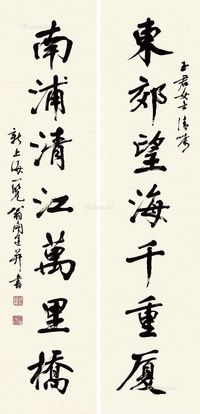 玉君女士清賞
東郊望海千重厦
南浦清江萬里橋
新上海一覽 翁闿運并書